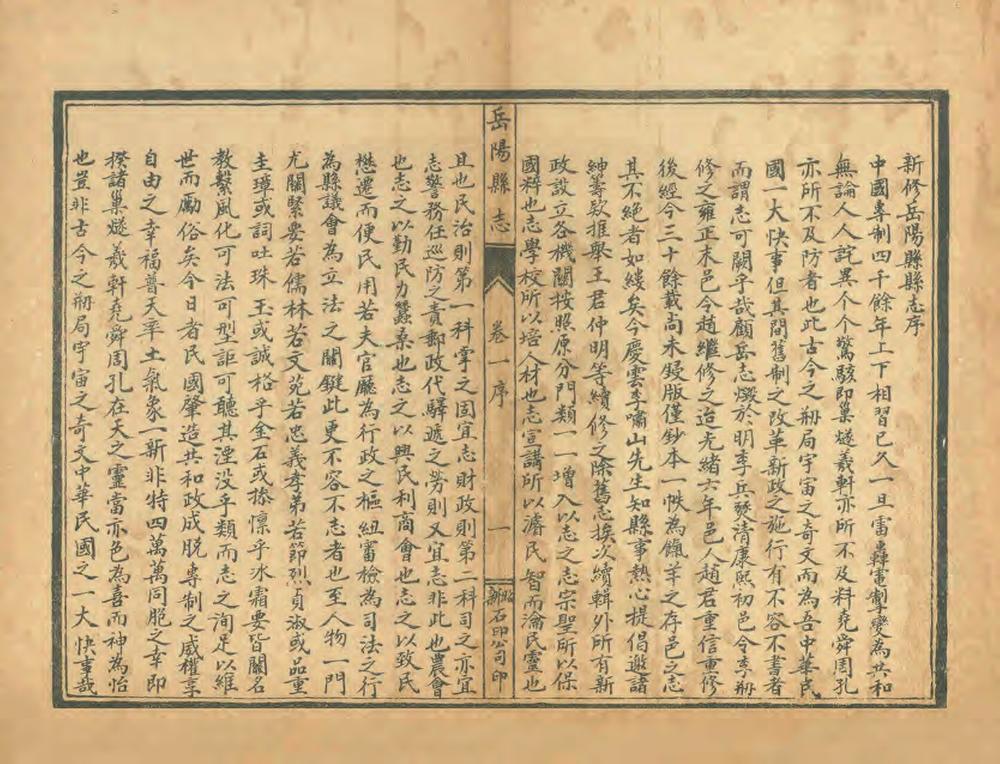 新修岳陽縣縣志序
中國專制四千餘年上下相習已久一旦雷轟電掣變為共和
無論人人詫異个个驚駭即巢燧羲軒亦所不及料堯舜周孔
亦所不及防者也此古今之剏局宇宙之奇文而為吾中華民
國一大快事但其間舊制之改革新政之施行有不容不書者
而謂志可闕乎哉顧岳志燬於明季兵燹清康熙初邑令李剏
修之雍正末邑令趙繼修之迨光緒六年邑人趙君重信重修
後經今三十餘載尚未鋟版僅鈔本一帙為餼羊之存邑之志
其不絕者如縷矣今慶雲李嘯山先生知縣事熱心提倡邀諸
紳籌欵推舉王君仲明等續修之除舊志挨次續輯外所有新
政設立各機關按照原分門類一一增入以志之志宗聖所以保
國粹也志學校所以培人材也志宣講所以濬民智而瀹民靈也
岳陽縣志
卷一序
一
石印公司印
且也民治則第一科掌之固宜志財政則第二科司之亦宜
志警務任巡防之責郵政代驛遞之劳則又宜志非此也農會
也志之以勤民力蠶桑也志之以興民利商會也志之以致民
懋遷而便民用若夫官廳為行政之樞紐審檢為司法之行
為縣議會為立法之關鍵此更不容不志者也至人物一門
尤關緊要若儒林若文苑若忠義孝弟若節烈貞淑或品重
圭璋或詞吐珠玉或誠格乎金石或操懍乎冰霜要皆關名
教繫風化可法可型詎可聽其湮没乎類而志之洵足以維
世而勵俗矣今日者民國肇造共和政成脱專制之威權享
自由之幸福普天率土氣象一新非特四萬萬同胞之幸即
揆諸巢燧羲軒堯舜周孔在天之靈當亦色為喜而神為怡
也豈非古今之剏局宇宙之奇文中華民國之一大快事哉